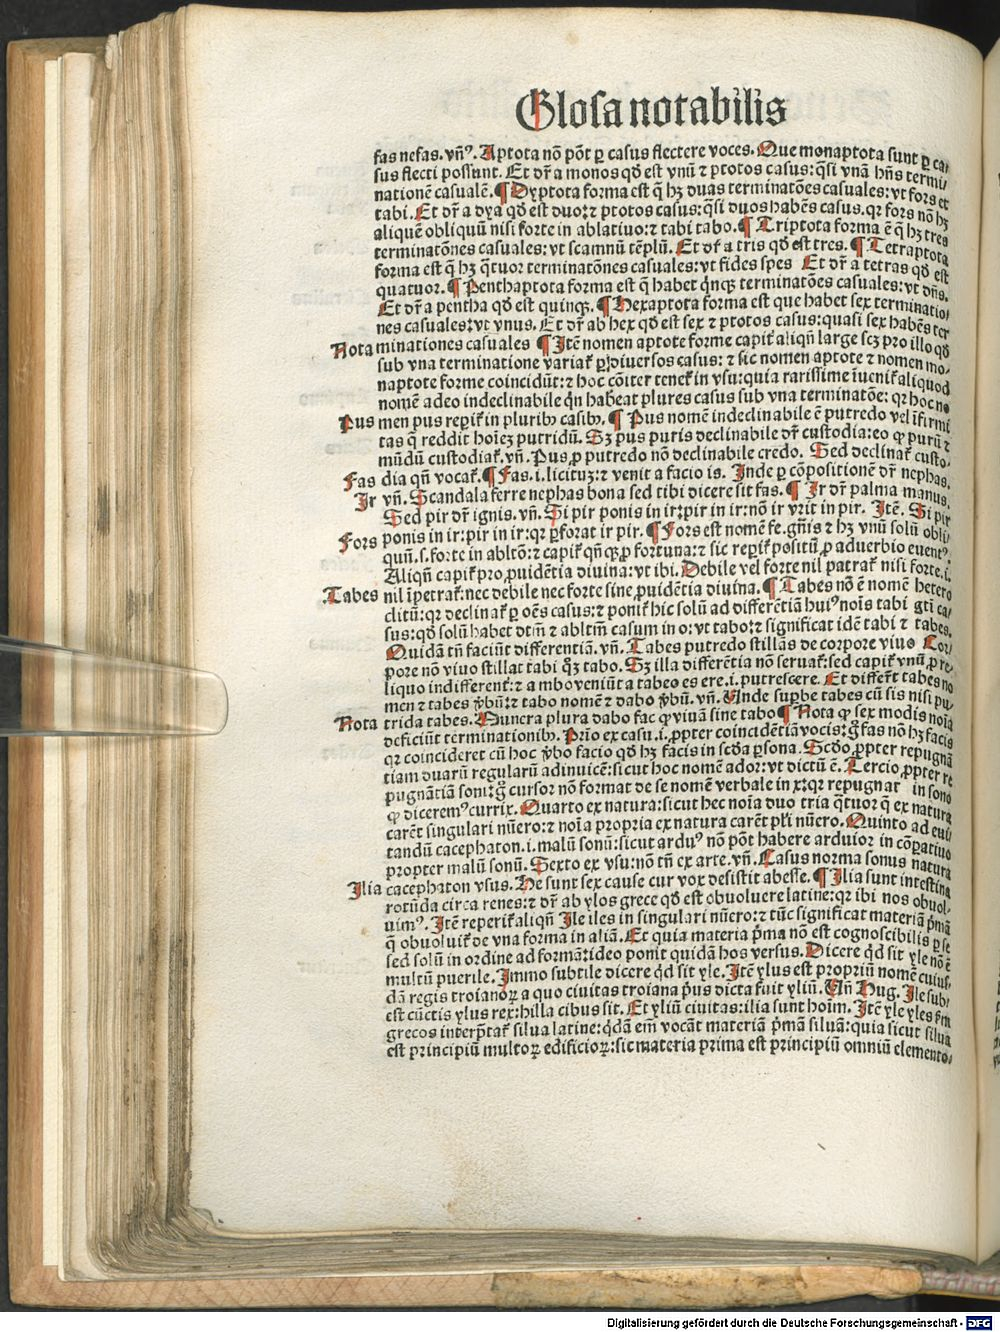 Glosa notabilis
fas nefas. vñꝰ. Aptota nõ põt ꝑ casus flectere voces. Que monaptota sunt ꝑ ca-
sus flecti possunt. Et dr̃ a monos qð est vnũ ⁊ ptotos casus: q̃si vnã hñs termi
nationẽ casualẽ. ¶ Dyptota forma est q̃ hꝫ duas terminatões casuales: vt fors et
tabi. Et dr̃ a dya qð est duo: ⁊ ptotos casus: q̃si duos habẽs casus. qꝛ fors nõ hꝫ
aliquẽ obliquũ nisi forte in ablatiuo: ⁊ tabi tabo. ¶ Triptota forma ẽ q̃ hꝫ tres
terminatões casuales: vt scamnũ tẽplũ. Et dr̃ a tris qð est tres. ¶ Tetraptota
forma est q̃ hꝫ q̃tuor terminatões casuales: vt fides spes Et dr̃ a tetras qð est
quatuor. ¶ Penthaptota forma est q̃ habet q̃nqꝫ terminatões casuales: vt dñs.
Et dr̃ a pentha qð est quinqꝫ. ¶ Hexaptota forma est que habet sex terminatio
nes casuales: vt vnus. Et dr̃ ab hex qð est sex ⁊ ptotos casus: quasi sex habẽs ter
Nota minationes casuales ¶ Itẽ nomen aptote forme capit̃ aliqñ large scꝫ pro illo qð
sub vna terminatione variat̃ ꝑ diuersos casus: ⁊ sic nomen aptote ⁊ nomen mo-
naptote forme coincidũt: ⁊ hoc cõiter tenet̃ in vsu: quia rarissime ĩuenit̃ aliquod
nomẽ adeo indeclinabile qñ habeat plures casus sub vna terminatõe: qꝛ hoc no
Pus men pus reperit̃ in pluribꝫ casibꝫ. ¶ Pus nomẽ indeclinabile ẽ putredo vel ĩfirmi
tas q̃ reddit hoĩeꝫ putridũ. Sꝫ pus puris declinabile dr̃ custodia: eo ꝙ purũ ⁊
mũdũ custodiat̃. vñ. Pus ꝓ putredo nõ declinabile credo. Sed declinat̃ custo-
Fas dia qñ vocat̃. ¶ Fas .i. licituꝫ: ⁊ venit a facio is. Inde ꝑ cõpositionẽ dr̃ nephas.
Ir vñ. Scandala ferre nephas bona sed tibi dicere sit fas. ¶ Ir dr̃ palma manus.
Sed pir dr̃ ignis. vñ. Si pir ponis in ir: pir in ir: nõ ir vrit in pir. Itẽ. Si pir
Fors ponis in ir: pir in ir: qꝛ ꝑforat ir pir. ¶ Fors est nomẽ fe. gñis ⁊ hꝫ vnũ solũ obli
quũ .s. forte in abltõ: ⁊ capit̃ qñqꝫ ꝓ fortuna: ⁊ sic reperit̃ positũ ꝓ aduerbio euentꝰ.
Aliqñ capit̃ pro ꝓuidẽtia diuina: vt ibi. Debile vel forte nil patrat̃ nisi forte .i.
Tabes nil ĩpetrat̃: nec debile nec forte sine ꝓuidẽtia diuina. ¶ Tabes nõ ẽ nomẽ hetero
clitũ: qꝛ declinat̃ ꝑ oẽs casus: ⁊ ponit̃ hic solũ ad differẽtiã huiꝰ noĩs tabi gti ca
sus: qð solũ habet dtm̃ ⁊ abltm̃ casum in o: vt tabo: ⁊ significat idẽ tabi ⁊ tabes.
Quidã tñ faciũt differentiã. vñ. Tabes putredo stillãs de corpore viuo Cor-
pore nõ viuo stillat tabi qꝫ tabo. Sꝫ illa differẽtia nõ seruat̃: sed capit̃ vnũ ꝓ re-
liquo indifferent̃: ⁊ a mbo veniũt a tabeo es ere .i. putrescere. Et differt̃ tabes no
men ⁊ tabes v̾bũ: ⁊ tabo nomẽ ⁊ dabo v̾bũ. vñ. Unde suꝑbe tabes cũ sis nisi pu-
Nota trida tabes. Munera plura dabo fac ꝙ viuã sine tabo ¶ Nota ꝙ sex modis noĩa
deficiũt terminationibꝫ. Prĩo ex casu .i. ꝓpter coincidẽtiã vocis: g̃ fas nõ hꝫ facis
qꝛ coincideret cũ hoc v̾bo facio qð hꝫ facis in scða ꝑsona. Scðo ꝓpter repugnã
tiam duarũ regularũ adinuicẽ: sicut hoc nomẽ ador: vt dictũ ẽ. Tercio ꝓpter re
pugnãtiã soni: g̃ cursor nõ format de se nomẽ verbale in x: qꝛ repugnar in sono
ꝙ diceremꝰ currix. Quarto ex natura: sicut hec noĩa duo tria q̃tuor q̃ ex natura
carẽt singulari nũero: ⁊ noĩa propria ex natura carẽt pl̃i nũero. Quinto ad eui
tandũ cacephaton .i. malũ sonũ: sicut arduꝰ nõ põt habere arduior in cõparatiuo
propter malũ sonũ. Sexto ex vsu: nõ tñ ex arte. vñ. Casus norma sonus natura
Ilia cacephaton vsus. He sunt sex cause cur vox desistit abesse. ¶ Ilia sunt intestina
rotũda circa renes: ⁊ dr̃ ab ylos grece qð est obuoluere latine: qꝛ ibi nos obuol-
uimꝰ. Itẽ reperit̃ aliqñ Ile iles in singulari nũero: ⁊ tũc significat materiã p̃mã
q̃ obuoluit̃ de vna forma in aliã. Et quia materia p̃ma nõ est cognoscibilis ꝑ se
sed solũ in ordine ad formã: ideo ponit quidã hos versus. Dicere qð sit yle nõ ẽ
multũ puerile. Immo subtile dicere qð sit yle. Itẽ ylus est propriũ nomẽ cuius-
dã regis troianoꝝ a quo ciuitas troiana p̃us dicta fuit yliũ. Uñ Hug. Ile sub-
est cũctis ylus rex: hilla cibus sit. Et yliũ ciuitas: ilia sunt hoĩm. Itẽ yle yles ẽm
grecos interp̃tat̃ silua latine: qðã em̃ vocãt materiã p̃mã siluã: quia sicut silua
est principiũ multoꝝ edificioꝝ: sic materia prima est principiũ omniũ elemento-
Digitalisierung gefördert durch die Deutsche Forschungsgemeinschaft - DFG